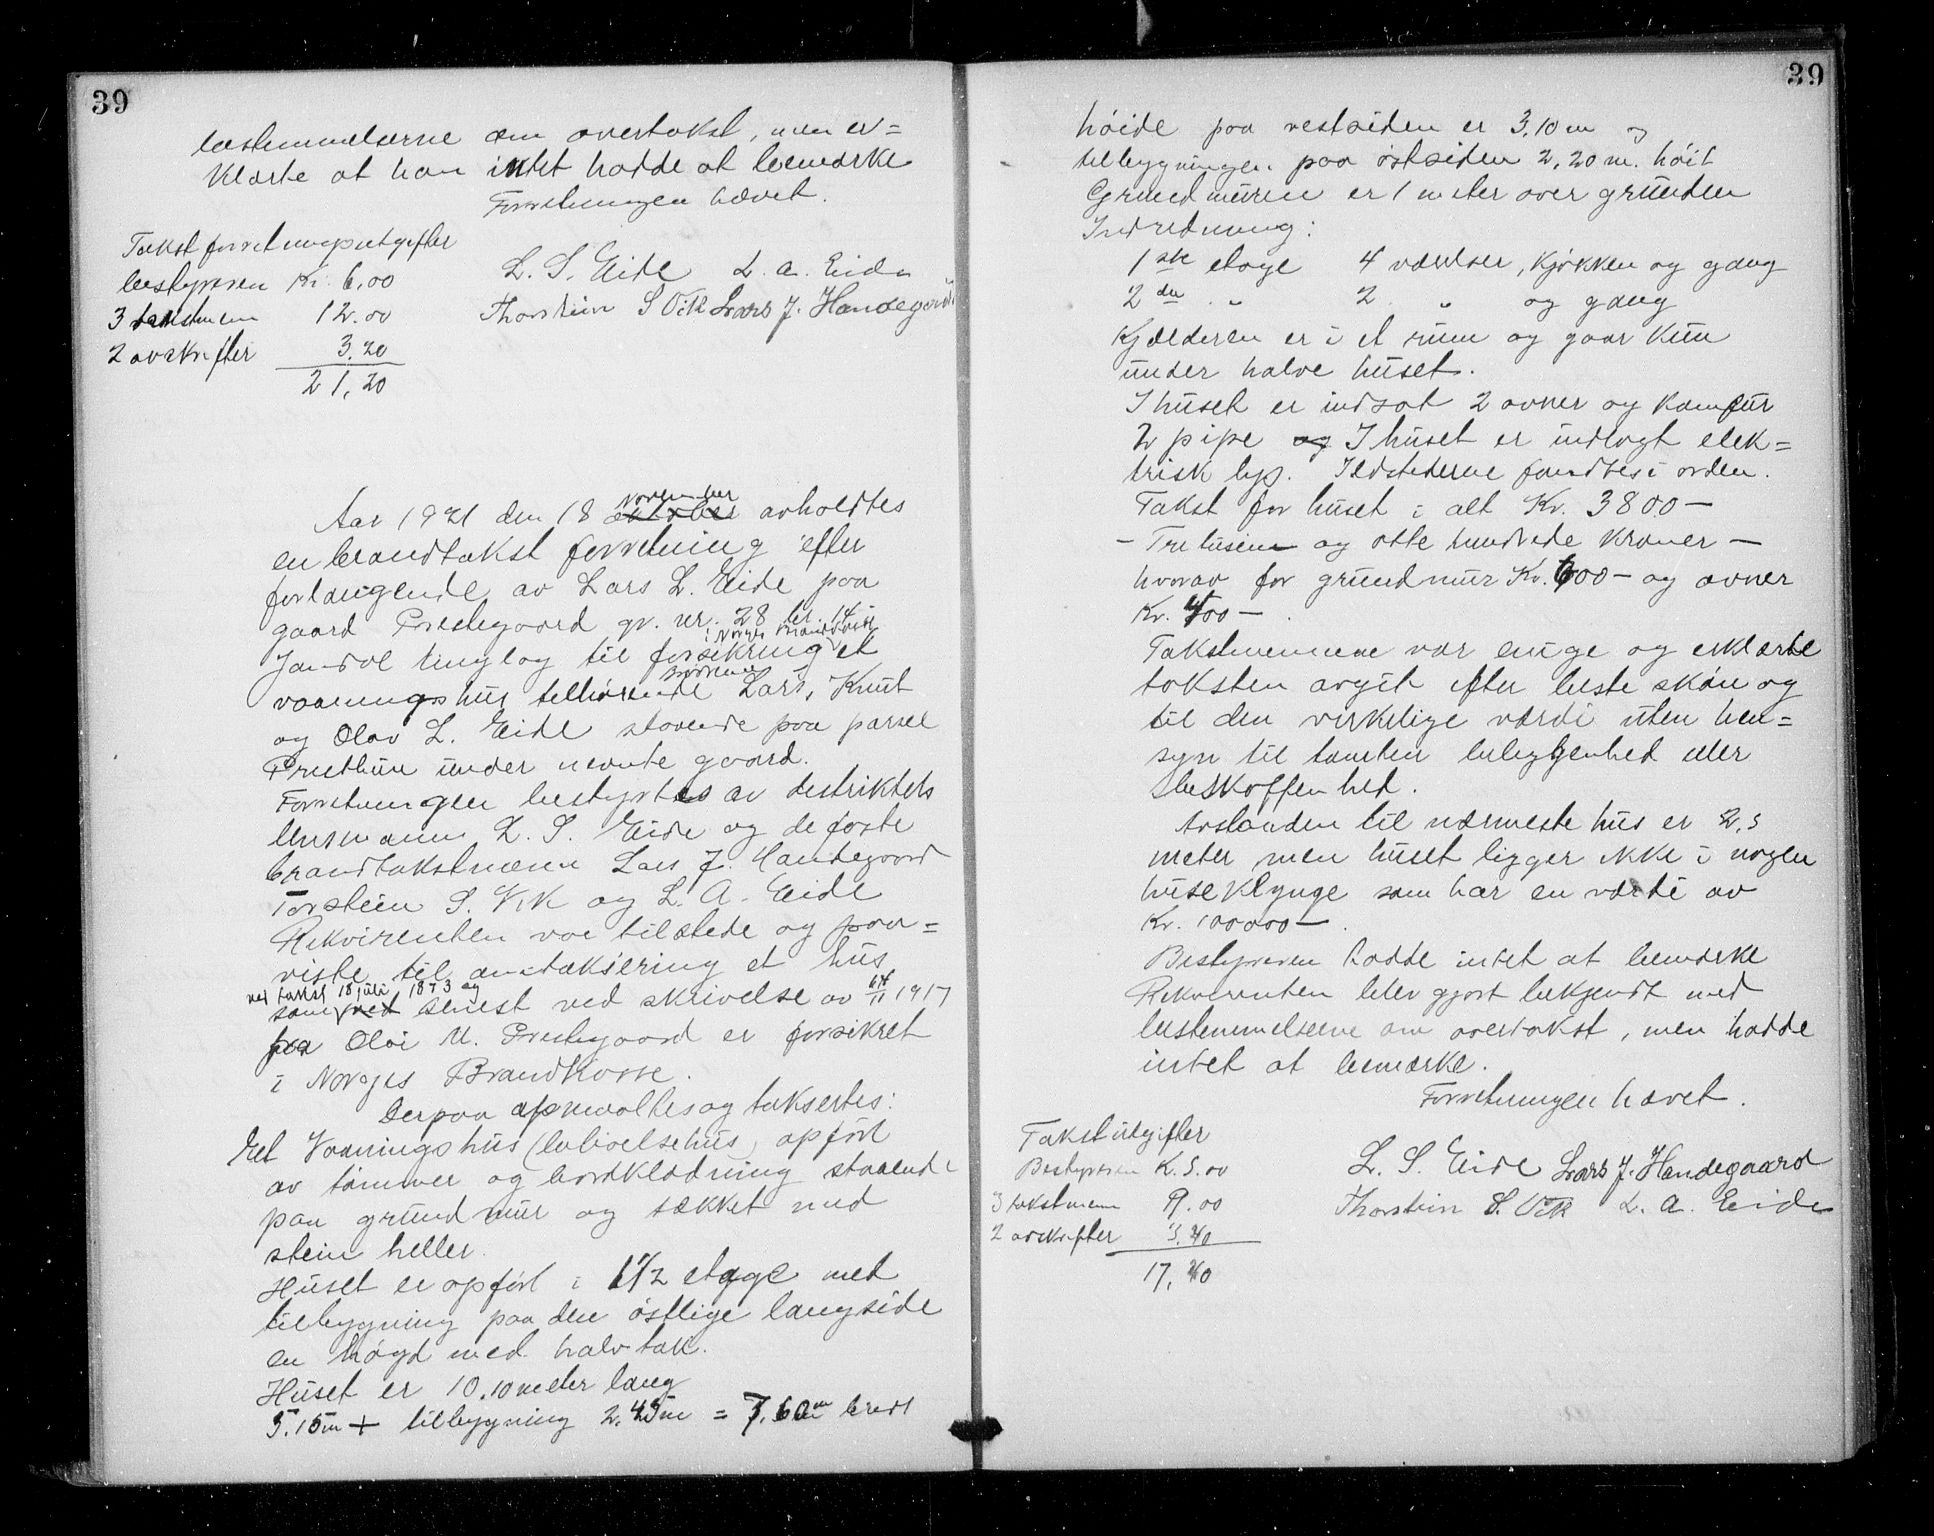 39
bestemmelserne om overtakst, men er=
klærte at han intet hadde at bemærke
Forretningen hævet.
Takstforretningsutgifter
bestyreren Kr. 6,00
3 takstmenn 12.00
2 avskrifter 3.20
21,20
L. S. Eide L. A. Eide
Thorstein S Vik Lars J. Handegaard
november
Aar 1921 den 18 oktober avholdtes
en brandtakst forretning efter
forlangende av Lars L. Eide paa
gaard Prestegaard gr. nr. 28 br. 14
i Norges Brandkasse
Jondal tinglag til forsikring et
Brødrene
vaaningshus tilhørende Lars, Knut
og Olav L. Eide staaende paa parsel
under nevnte gaard.
Forretningen bestyrtes av distriktets
lensmann L. S. Eide og de faste
brandtakstmenn Lars J. Handegaard
Torstein S. Vik og L. A. Eide
Rekvirenten var tilstede og paa=
viste til omtaksering et hus
ved takst 18 juli 1873 og
som ved senest ved skrivelse av 11 1917
paa Olai M. Prestegaard er forsikret
i Norges Brandkasse.
Derpaa opmaaltes og taksertes:
Et Vaaningshus (beboelsehus) opført
av tømmer og bordklædning staaende
paa grundmur og tækket med
stein heller.
Huset er opført i 1 1/2 etage med
tilbygning paa den østlige langside
en høyd med halvtak.
Huset er 10,10 meter lang
5.15m + tilbygning 2.45m = 7,60m bredt
39
høide paa vestsiden er 3,10 m og
tilbygningen paa østsiden 2,20 m. høit
Grundmuren er 1 meter over grunden
Indredning:
1ste etage 4 værelser, kjøkken og gang
2den " 2 " og gang
Kjælderen er i et rum og gaar kun
under halve huset.
I huset er indsat 2 ovner og komfur
2 pipe og I huset er indlagt elek=
trisk lys. Ildstederne fandtes i orden.
Takst for huset i alt Kr. 3800 —
— Tre tusen og otte hundrede kroner —
hvorav for grundmur Kr. 600 — og ovner
Kr. 400 — .
Takstmennene var enige og erklærte
taksten avgit efter beste skøn og
til den virkelige værdi uten hen=
syn til tomten beliggenhed eller
beskaffenhed.
Avstanden til nærmeste hus er 2,5
meter, men huset ligger ikke i nogen
huseklynge som har en værdi av
Kr. 100000 — .
Bestyreren hadde intet at bemærke
Rekvirenten blev gjort bekjendt med
bestemmelserne om overtakst, men hadde
intet at bemærke.
Forretningen hævet.
Takstutgifter
Bestyreren K. 5.00
3 takstmenn 9.00
2 avskrifter 3.40
17,40
L. S. Eide Lars J. Handegaard
Thorstein S. Vik L. A. Eide